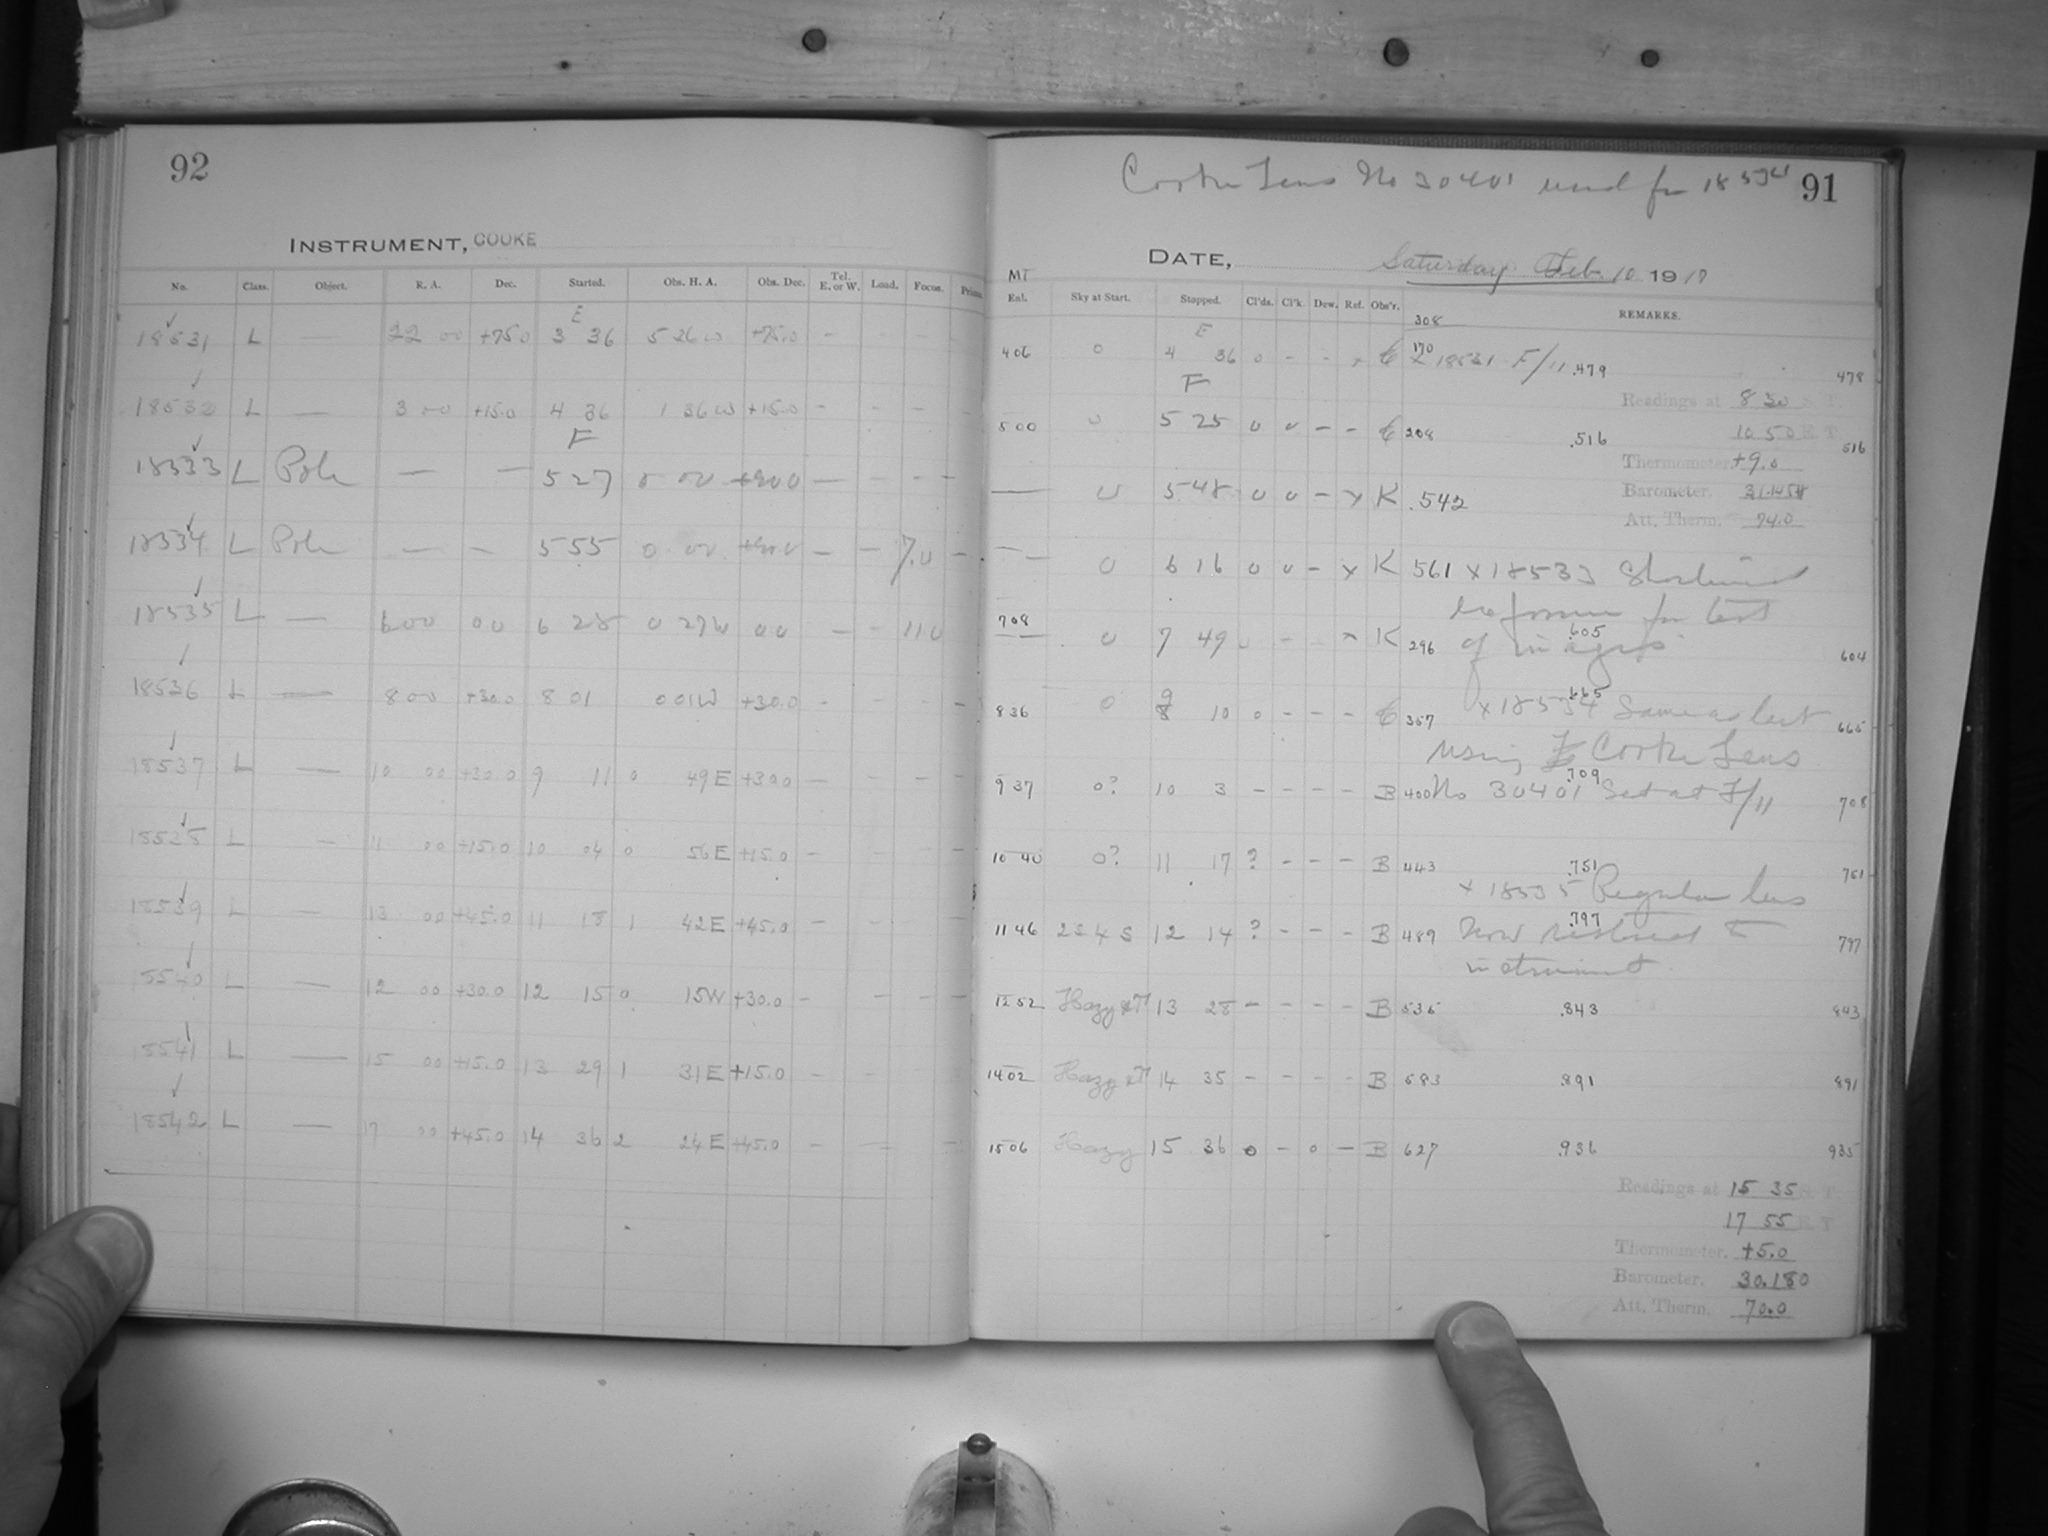 92
INSTRUMENT, COOKE
No. Class. Object. R. A. Dec. Started. Obs. H. A. Obs. Dec. Tel. E. or W. Load. Focus. Prism.
18531 L — 22 00 +75.0 E 3 36 5 36 W +75.0 - - -
18532 L — 3 00 +15.0 4 36 1 36 W +15.0 - - - -
18533 L Pole — — F 5 27 0 00 +90 0 — - - -
18534 L Pole — — 5 55 0 00 +90 0 — - 7.0 -
18535 L — 6 00 0 0 6 28 0 27 W 0 0 — - 11.0
18536 L — 8 00 +30.0 8 01 0 01 W +30.0 - - - -
18537 L — 10 00 +30 0 9 11 0 49 E +30.0 — - - -
18538 L — 11 00 +15.0 10 04 0 56 E +15.0 - - - -
18539 L — 13 00 +45.0 11 18 1 42 E +45.0 - - -
18540 L — 12 00 +30.0 12 15 0 15 W +30.0 - - - -
18541 L — 15 00 +15.0 13 29 1 31 E +15.0 - - -
18542 L — 17 00 +45.0 14 36 2 24 E +45.0 - — -
Cooke Lens No 30401 used for 18534 91
DATE, Saturday Feb. 10 1917
MT
Eal. Sky at Start. Stopped. Cl'ds. Cl'k. Dew. Ref. Obs'r. REMARKS.
308
406 0 E 4 36 0 - - x C 170 x 18531 F/11 .479 478
Readings at 8 30 S. T.
500 0 F 5 25 0 0 - - C 208 .516 10 50 E. T. 516
Thermometer +9.0
— 0 5 48 0 0 - x K .542 Barometer.
Att. Therm. 74.0
— 0 6 16 0 0 - x K 561 x 18533 Short
for test
708 0 7 49 - - x K 296 of images .605 604
836 0 9 10 0 - - - C 357 x 18534 Same as last .665 665
using Cooke Lens
9 37 0? 10 3 - - - - B 400 No 30401 Set at F/11 .709 708
10 40 0? 11 17 ? - - - B 443 .751 751
x 18535 Regular lens
11 46 2S 4 S 12 14 ? - - - B 489 now restored to .797 797
instrument
12 52 Hazy 13 28 - - - - B 535 .843 843
14 02 Hazy 14 35 - - - - B 583 .891 891
15 06 Hazy 15 36 0 - 0 - B 627 .936 935
Readings at 15 35 S. T.
17 55 E. T.
Thermometer. +5.0
Barometer. 30.180
Att. Therm. 70.0